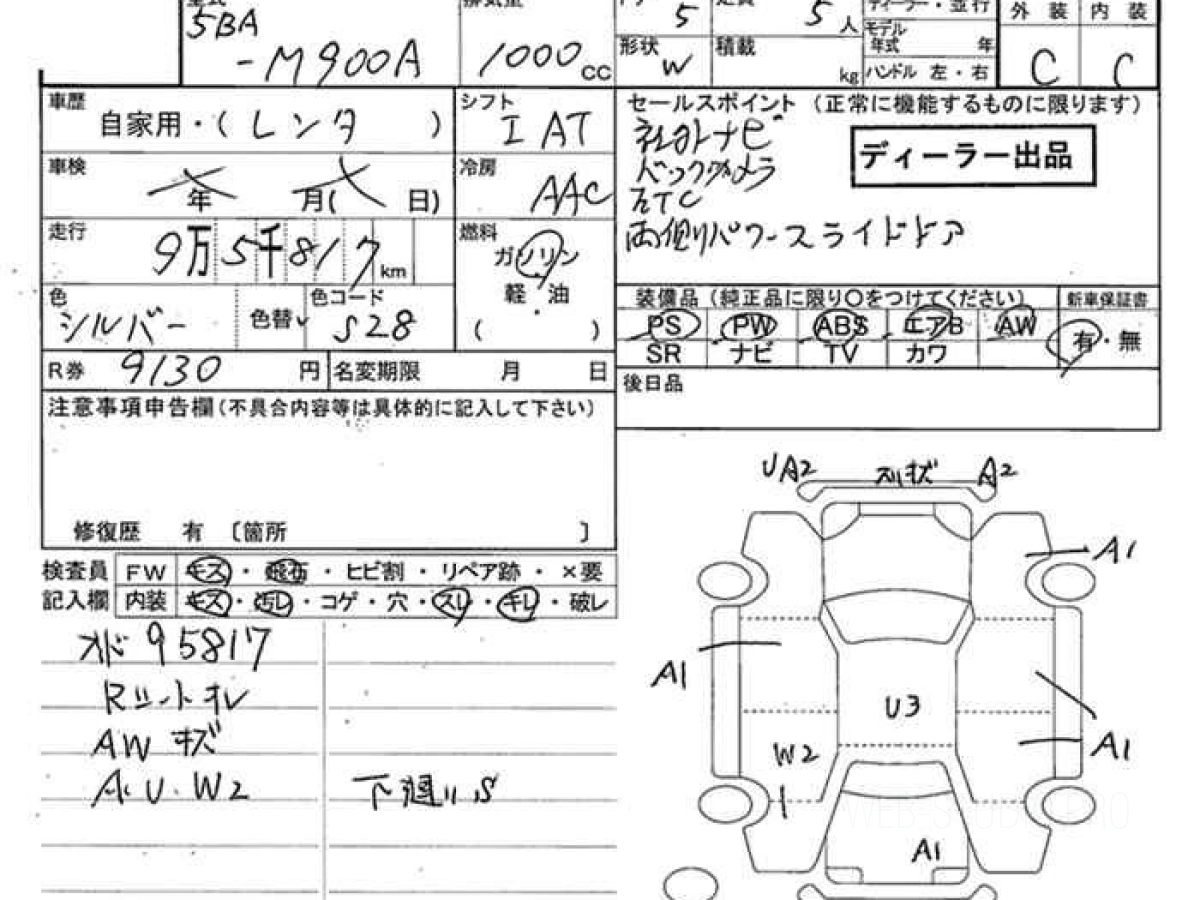 5BA
-M900A
1000 cc
5
5人
ディーラー・並行
モデル
年式 年
ハンドル 左・右
形状 W
積載 kg
外装 内装
C C
車歴 自家用・(レンタ )
シフト I AT
車検 年 月( 日)
冷房 AAC
走行 9万5千817km
燃料 ガソリン
軽・油
( )
色 シルバー
色替
色コード S28
R券 9130円
名変期限 月 日
セールスポイント(正常に機能するものに限ります)
社外ナビ
バックカメラ
ETC
両側パワースライドドア
ディーラー出品
装備品(純正品に限り○をつけてください)
PS PW ABS エアB AW
SR ナビ TV カワ
新車保証書
有・無
後日品
注意事項申告欄(不具合内容等は具体的に記入して下さい)
修復歴 有 〔箇所 〕
検査員 FW キズ・飛石・ヒビ割・リペア跡・×要
記入欄 内装 キズ・汚レ・コゲ・穴・スレ・キレ・破レ
オド 95817
Rシートオレ
AW キズ
A・U・W2
下廻りS
UA2 スリキズ A2
A1
A1
U3
A1
W2
A1